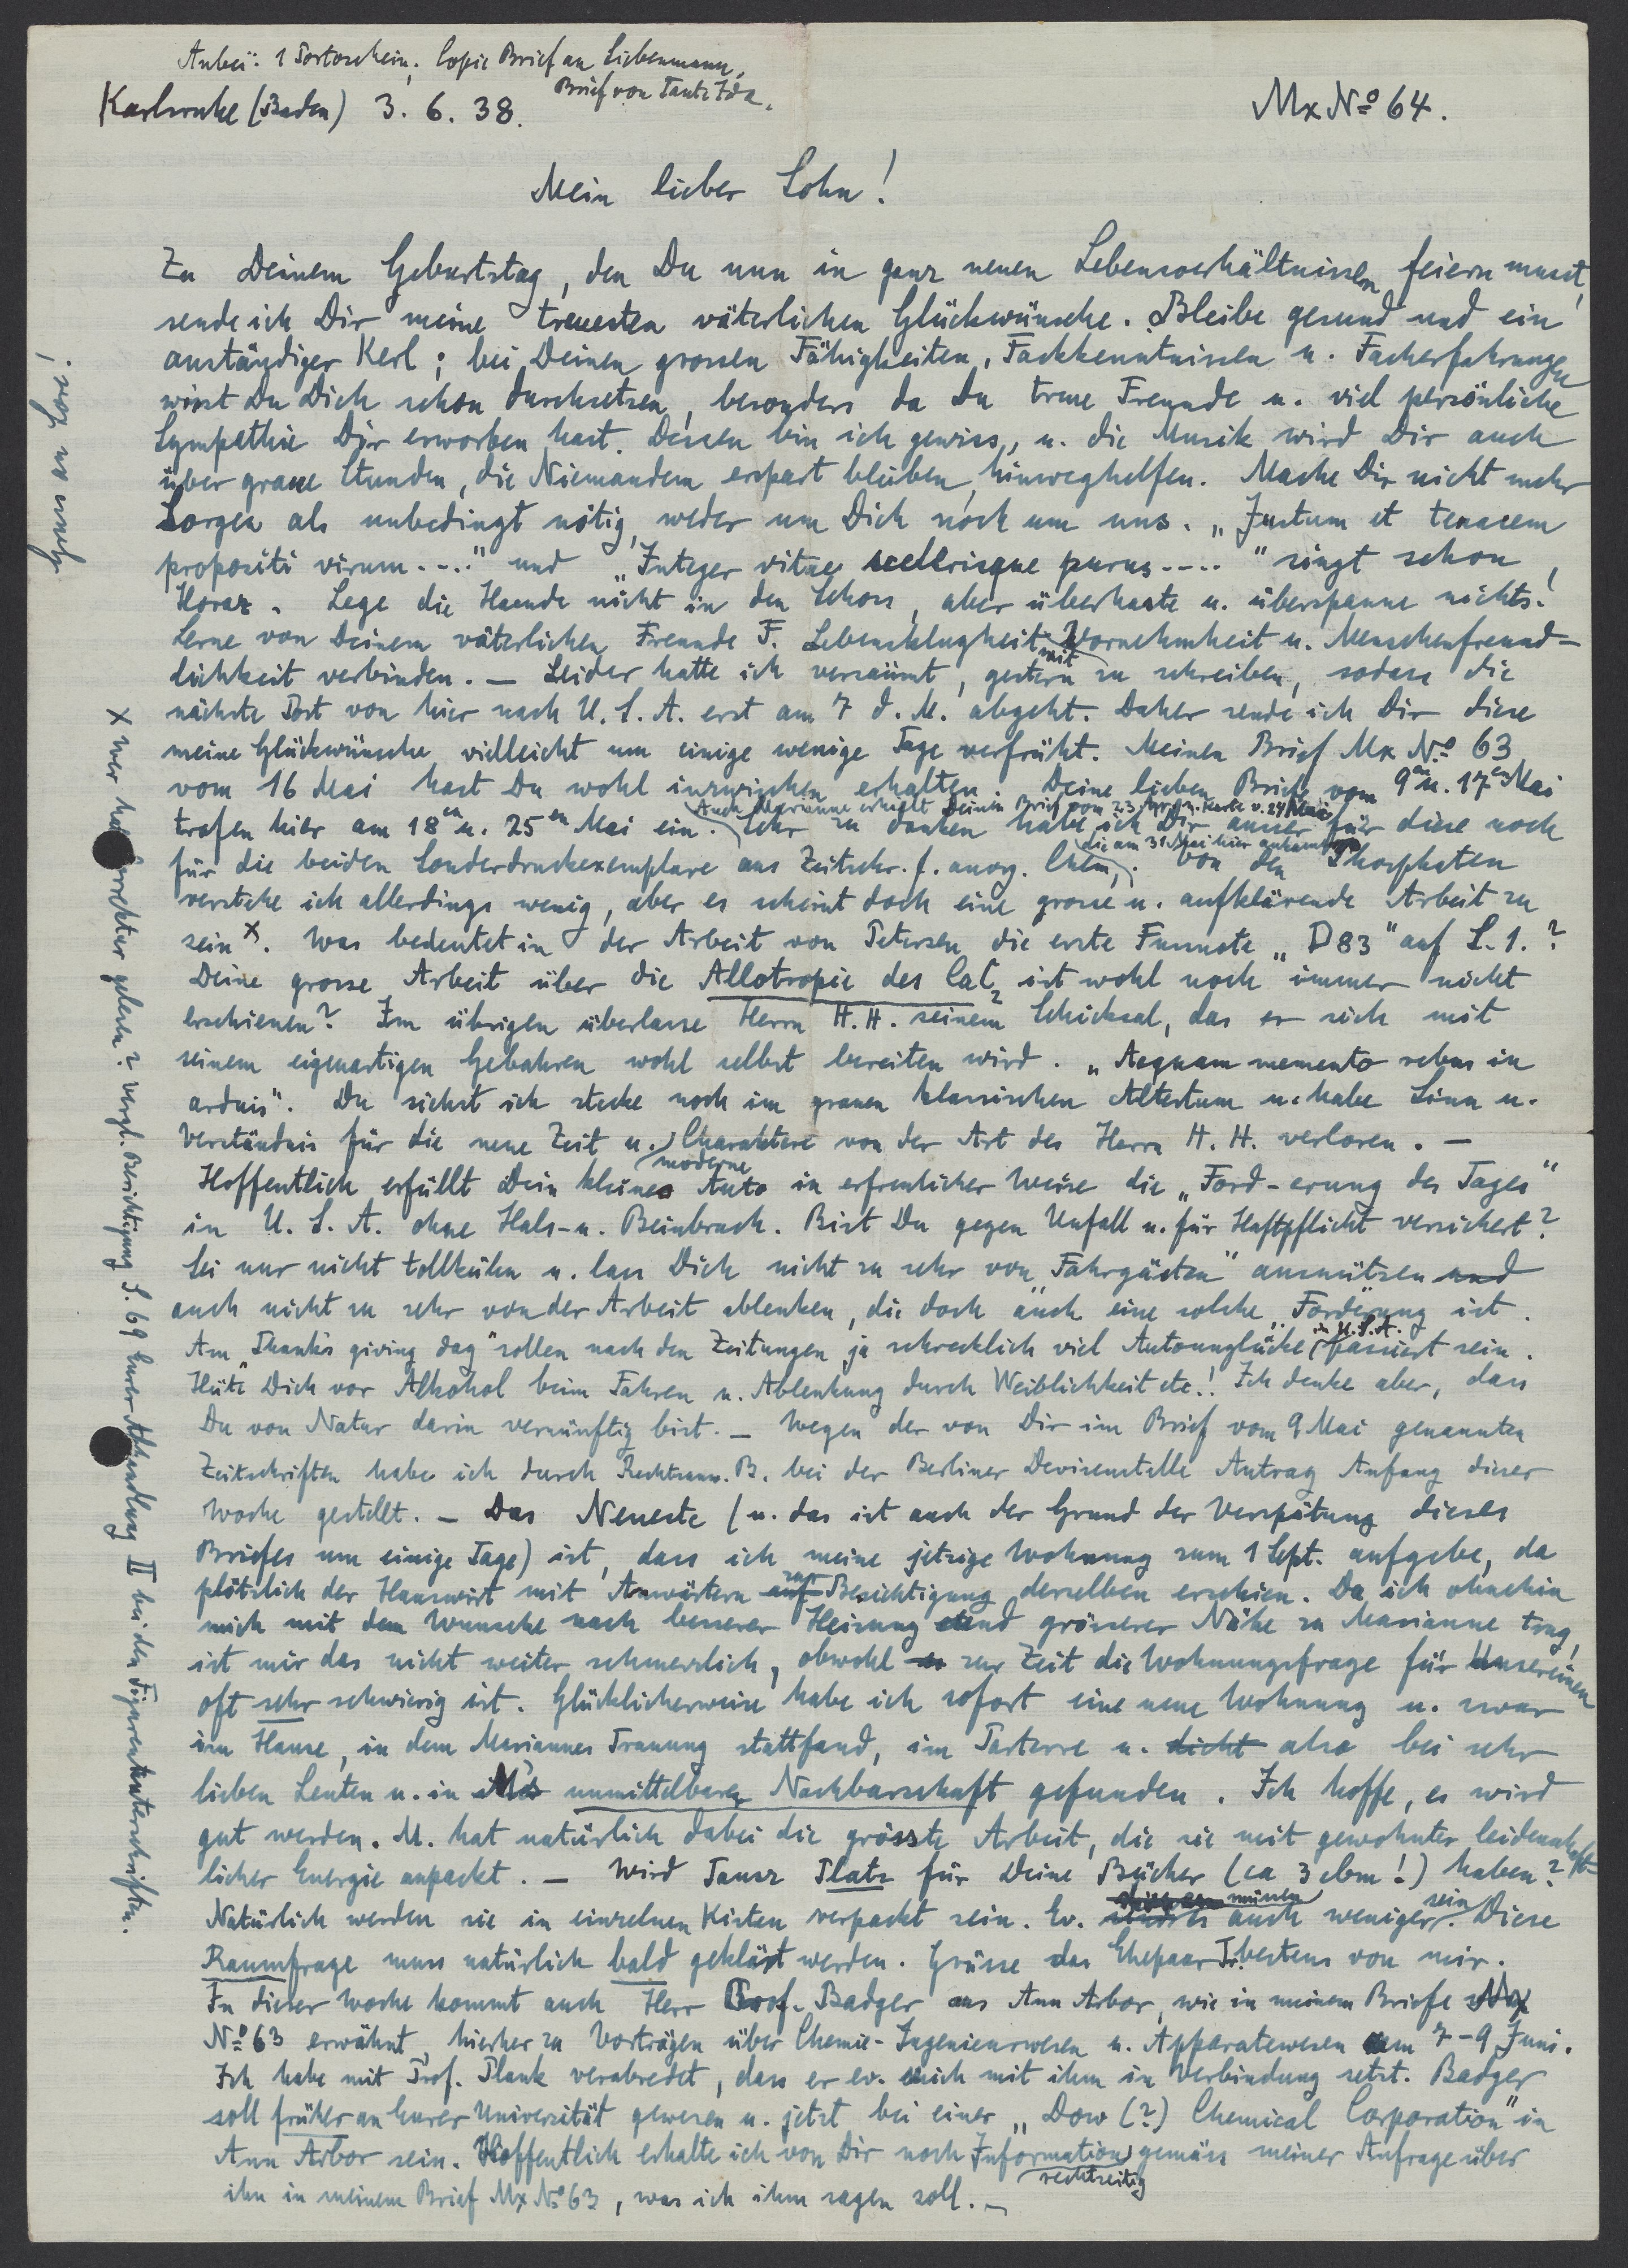 Anbei: 1 Portoschein; Copie Brief an Liebenmann,
Brief von Tante Ida.
Karlsruhe (Baden) 3. 6. 38.
Mx No 64.
Mein lieber Sohn!
Zu Deinem Geburtstag, den Du nun in ganz neuen Lebensverhältnissen feiern musst,
sende ich Dir meine treuesten väterlichen Glückwünsche. Bleibe gesund und ein
anständiger Kerl; bei Deinen grossen Fähigkeiten, Fachkenntnissen u. Facherfahrungen
wirst Du Dich schon durchsetzen, besonders da Du treue Freunde u. viel persönliche
Sympathie Dir erworben hast. Dessen bin ich gewiss, u. die Musik wird Dir auch
über graue Stunden, die Niemandem erspart bleiben, hinweghelfen. Mache Dir nicht mehr
Sorgen als unbedingt nötig, weder um Dich noch um uns. „Justum et tenacem
propositi virum...." und „Integer vitae scelerisque purus...." singt schon
Horaz. Lege die Haende nicht in den Schoss, aber überhaste u. überspanne nichts!
Lerne von Deinem väterlichen Freunde F. Lebensklugheit mit Vornehmheit u. Menschenfreund-
lichkeit verbinden. — Leider hatte ich versäumt, gestern zu schreiben, sodass die
nächste Post von hier nach U.S.A. erst am 7 d. M. abgeht. Daher sende ich Dir diese
meine Glückwünsche vielleicht um einige wenige Tage verfrüht. Meinen Brief Mx No 63
vom 16 Mai hast Du wohl inzwischen erhalten. Deine lieben Briefe vom 9en u. 17en Mai
trafen hier am 18en u. 25en Mai ein. Auch Marianne erhielt Deinen Brief vom 23 Apr. u. Karte v. 24 Mai. Sehr zu danken habe ich Dir ausser für diese noch
für die beiden Sonderdruckexemplare aus Zeitschr. f. anorg. Chem., die am 31 Mai hier ankamen. Von den Phosphaten
verstehe ich allerdings wenig, aber es scheint doch eine grosse u. aufklärende Arbeit zu
sein x. Was bedeutet in der Arbeit von Petersen die erste Fussnote „D83" auf S. 1.?
Deine grosse Arbeit über die Allotropie des CaC2 ist wohl noch immer nicht
erschienen? Im übrigen überlasse Herrn H.H. seinem Schicksal, das er sich mit
seinem eigenartigen Gebahren wohl selbst bereiten wird. „Aequam memento rebus in
arduis". Du siehst ich stecke noch im grauen klassischen Altertum u. habe Sinn u.
Verständnis für die neue Zeit u. moderne Charaktere von der Art des Herrn H. H. verloren. —
Hoffentlich erfüllt Dein kleines Auto in erfreulicher Weise die „Ford-erung des Tages"
in U. S. A. ohne Hals- u. Beinbruch. Bist Du gegen Unfall u. für Haftpflicht versichert?
Sei nur nicht tollkühn u. lass Dich nicht zu sehr von „Fahrgästen" ausnützen und
auch nicht zu sehr von der Arbeit ablenken, die doch auch eine solche „Forderung" ist.
Am „Thank's giving dag" sollen nach den Zeitungen ja schrecklich viel Autounglücke in U.S.A. passiert sein.
Hüte Dich vor Alkohol beim Fahren u. Ablenkung durch Weiblichkeit etc.! Ich denke aber, dass
Du von Natur darin vernünftig bist. — Wegen der von Dir im Brief vom 9 Mai genannten
Zeitschriften habe ich durch Rechtsanw. B. bei der Berliner Devisenstelle Antrag Anfang dieser
Woche gestellt. — Das Neueste (u. das ist auch der Grund der Verspätung dieses
Briefes um einige Tage) ist, dass ich meine jetzige Wohnung zum 1 Sept. aufgebe, da
plötzlich der Hauswirt mit Anwärtern auf zur Besichtigung derselben erschien. Da ich ohnehin
mich mit dem Wunsche nach besserer Heizung und grösserer Nähe zu Marianne trug,
ist mir das nicht weiter schmerzlich, obwohl es zur Zeit die Wohnungsfrage für Unsereinen
oft sehr schwierig ist. Glücklicherweise habe ich sofort eine neue Wohnung u. zwar
im Hause, in dem Mariannes Trauung stattfand, im Parterre u. dicht also bei sehr
lieben Leuten u. in M's unmittelbarer Nachbarschaft gefunden. Ich hoffe, es wird
gut werden. M. hat natürlich dabei die grösste Arbeit, die sie mit gewohnter leidenschaft-
licher Energie anpackt. — Wird Tausz Platz für Deine Bücher (ca 3 cbm!) haben?
Natürlich werden sie in einzelnen Kisten verpackt sein. Ev. müssen auch weniger sein. Diese
Raumfrage muss natürlich bald geklärt werden. Grüsse das Ehepaar Tr. bestens von mir.
In dieser Woche kommt auch Herr Prof. Badger aus Ann Arbor, wie in meinem Briefe Mx
No 63 erwähnt, hierher zu Vorträgen über Chemie-Ingenieurwesen u. Apparatewesen am 7-9 Juni.
Ich habe mit Prof. Plank verabredet, dass er ev. mich mit ihm in Verbindung setzt. Badger
soll früher an Eurer Universität gewesen u. jetzt bei einer „Dow (?) Chemical Corporation" in
Ann Arbor sein. Hoffentlich erhalte ich von Dir noch rechtzeitig Information gemäss meiner Anfrage über
ihn in meinem Brief Mx No 63, was ich ihm sagen soll. —
x Wer hat Korrektur gelesen? vergl. Berichtigung S. 69 Eurer Abhandlung II bei den Figurenunterschriften.